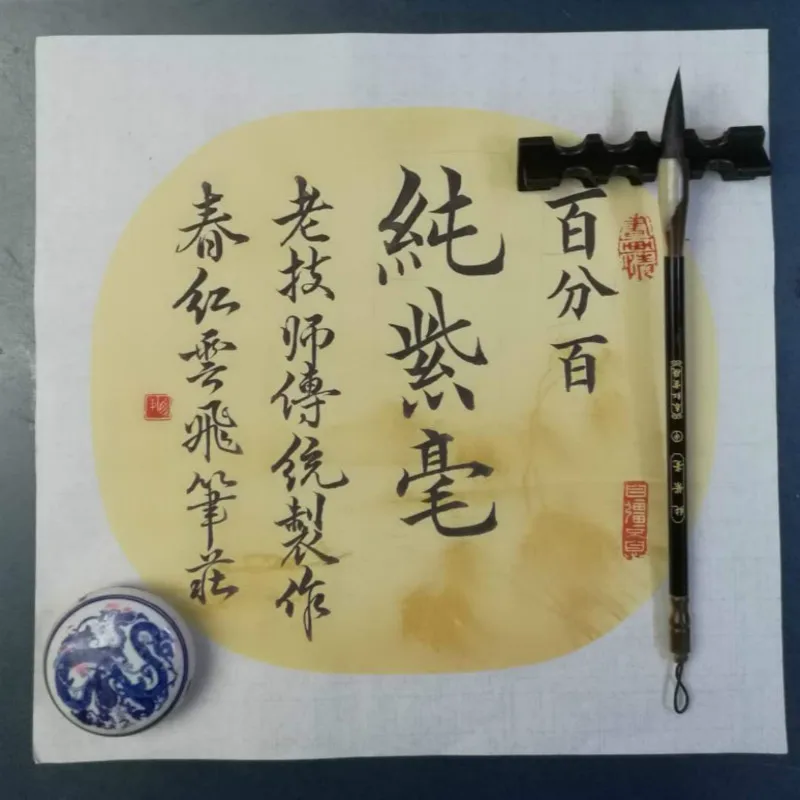 百分百
純紫毫
老技師傳統製作
春红雲飛筆莊